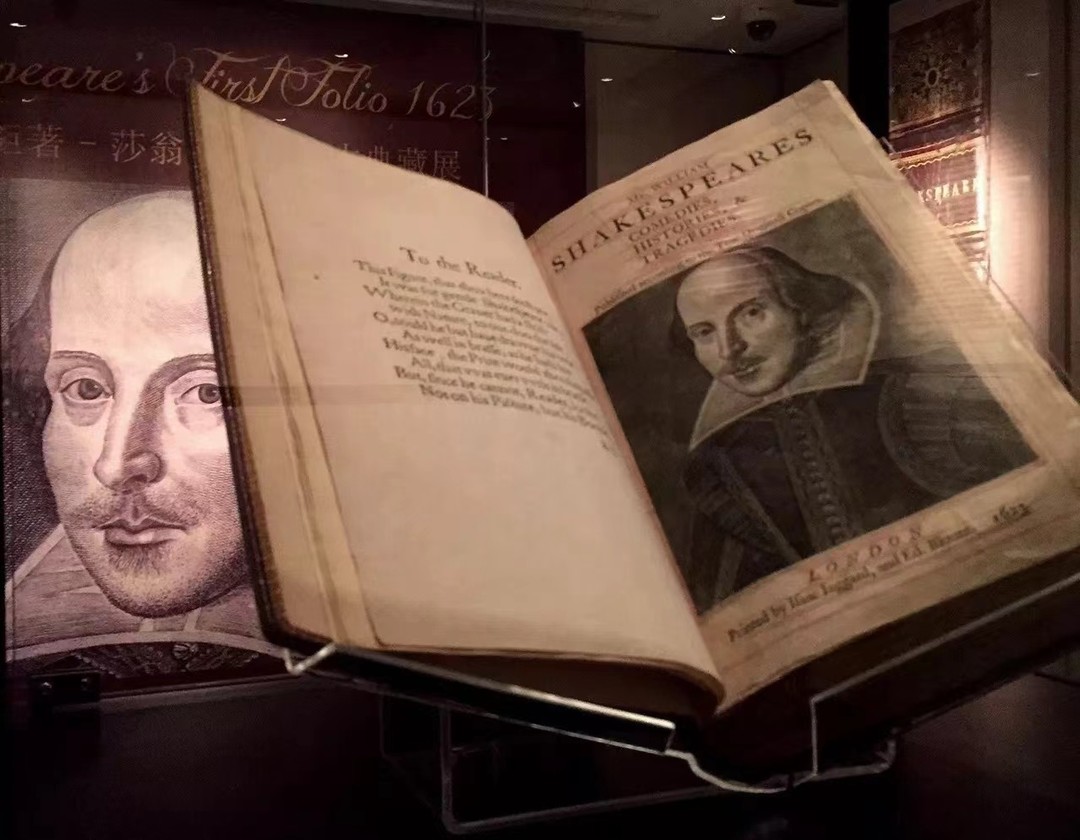 peare's First Folio 1623
巨著 - 莎翁 典藏展
To the Reader.
This Figure, that thou here
It was for gentle Shakespeare
Wherein the Grauer had a
with Nature, to out-doo the
O, could he but haue drawne his
As well in brasse, as he hath
His face ; the Print would then
All, that vvas euer vvrit in
But, since he cannot, Reader,
Not on his Picture, but his Booke
Mr. WILLIAM
SHAKESPEARES
COMEDIES,
HISTORIES, &
TRAGEDIES.
Published according to the True Originall Copies.
LONDON
Printed by Isaac Iaggard, and Ed. Blount. 1623